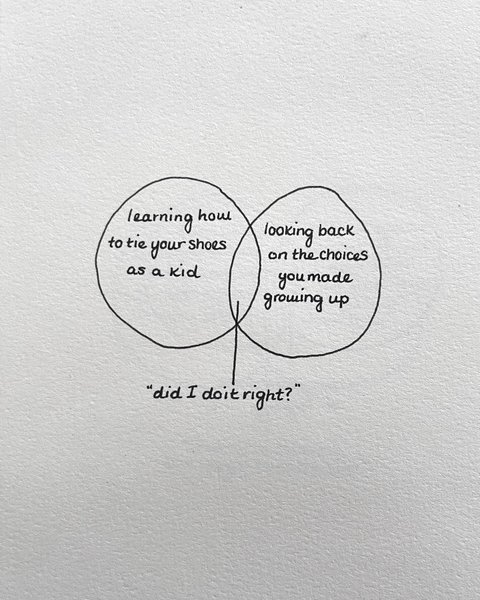 learning how
to tie your shoes
as a kid
looking back
on the choices
you made
growing up
"did I do it right?"